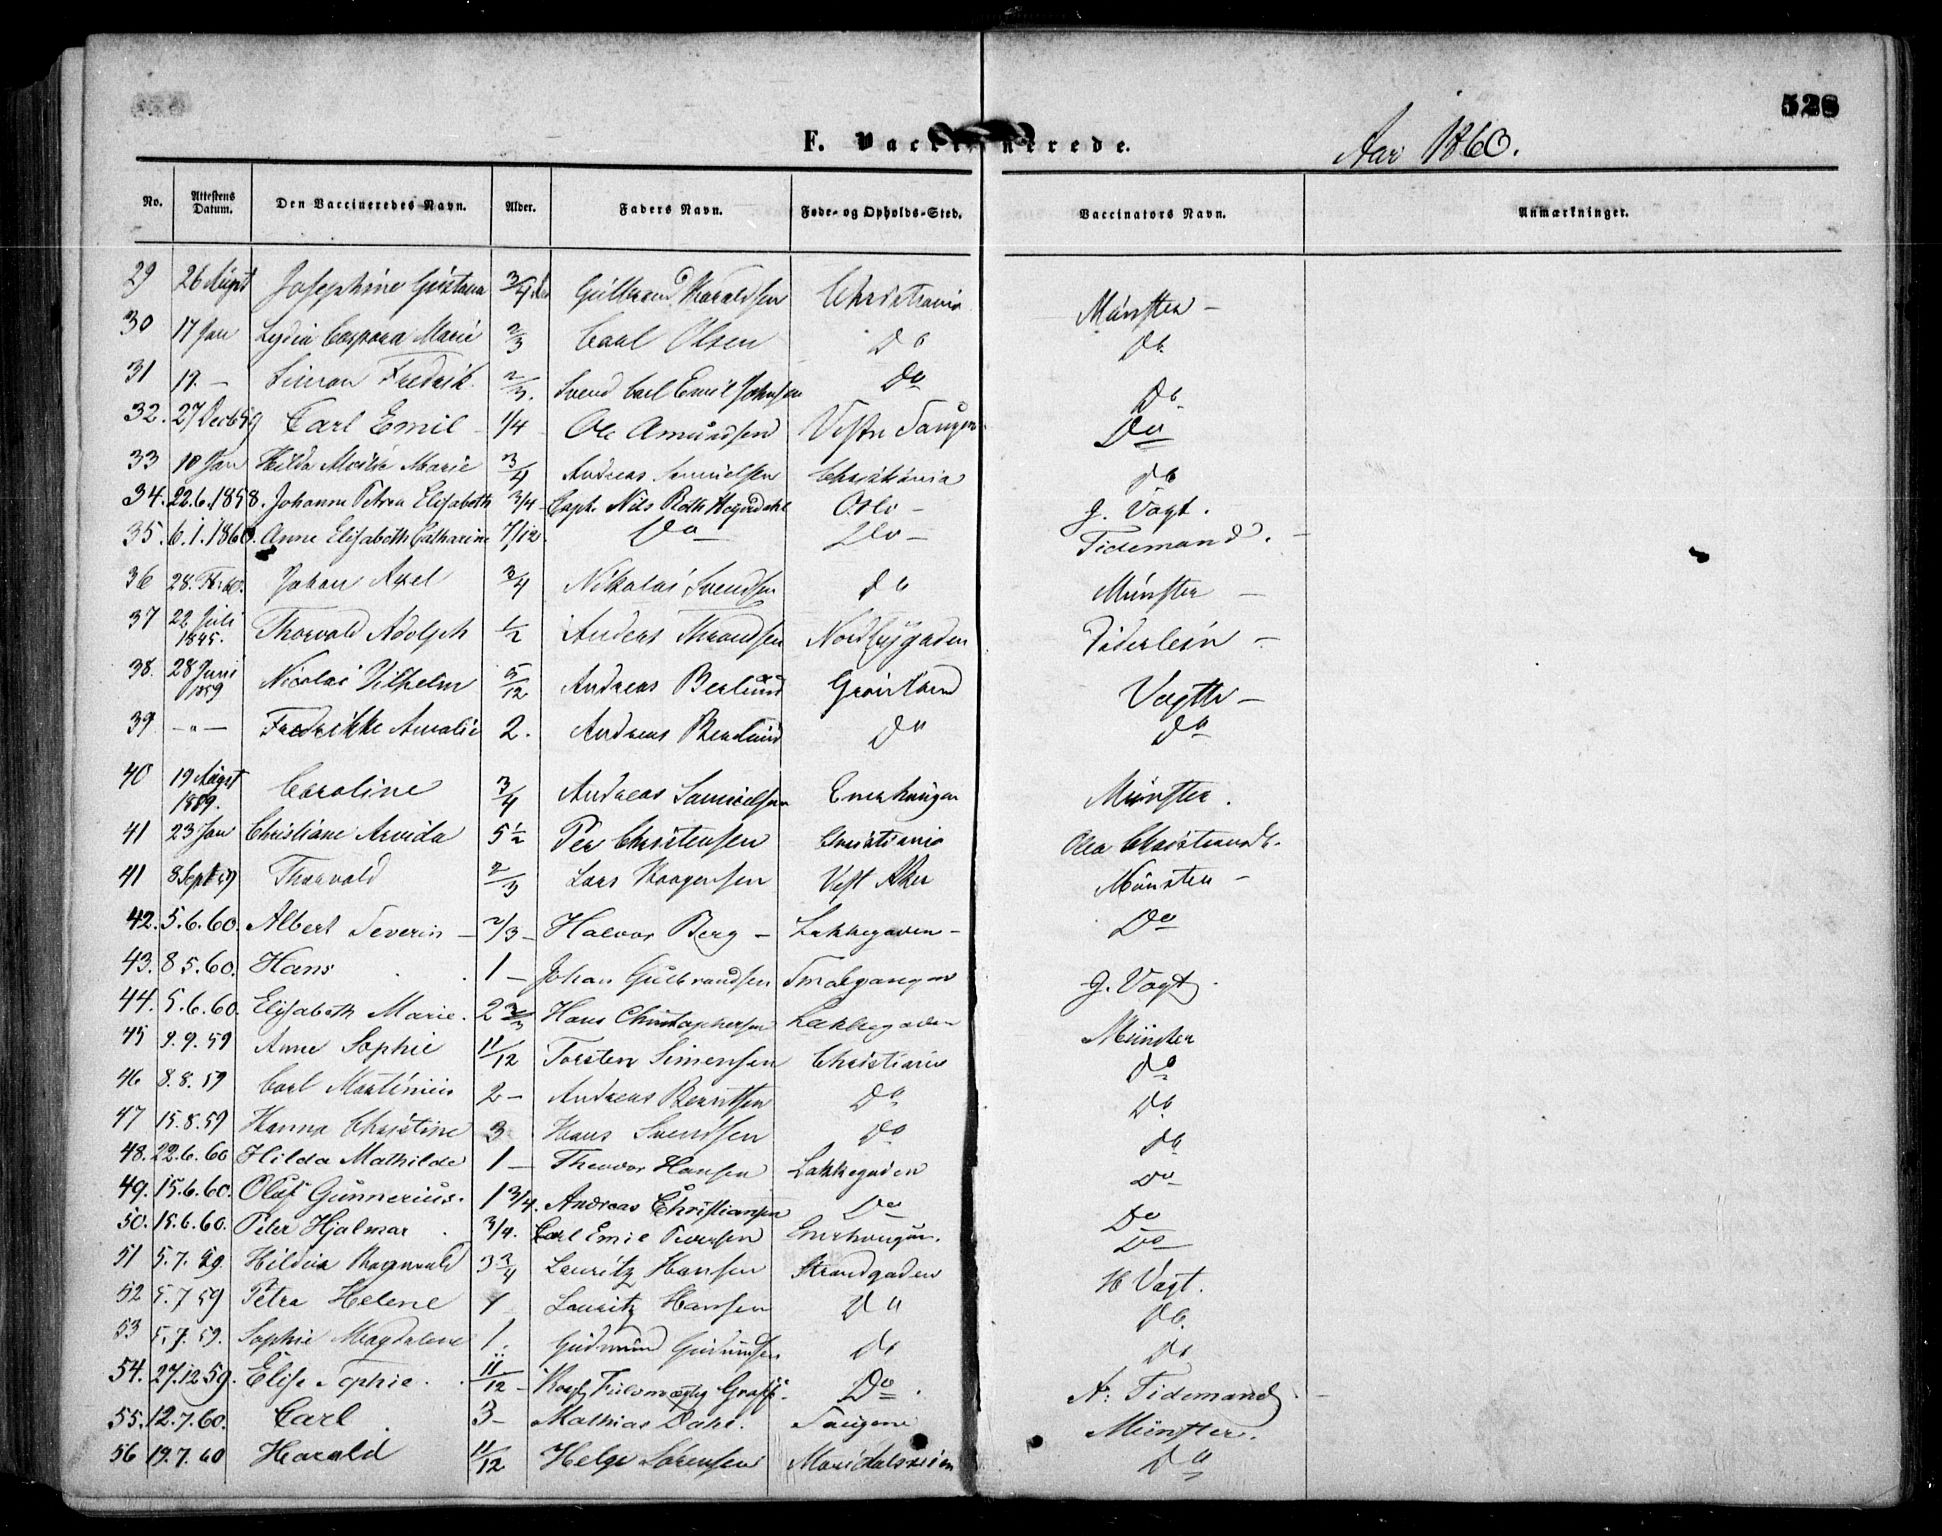 528
F. Vaccinerede.
Aar 1860.
No. Attestens Datum. Den Vaccineredes Navn. Alder. Faders Navn. Føde- og Opholds-Sted. Vaccinators Navn. Anmærkninger.
29 26 Augst Josephine Gustava 3/4 Gulbrand Haraldsen Christiania Münster -
30 17 Jan Lydia Caspara Marie 2/3 Carl Olsen Do Do
31 19. - Simon Fredrik 2/3. Svend Carl Emil Johnsen Do Do
32. 27 Decb 59 Carl Emil - 1/4 - Ole Amundsen Vestre Do
33 10 Jan Hilda Marie 3/4 Andreas Samuelsen Christiania Do
34. 22.6.1858. Johanne Petrea Elisabeth 3/4 - Capt. Nils Roth Oslo - J. Vogt.
35. 6.1.1860. Anne Elisabeth Catharine 7/12. Do - Do - Tidemand. -
36 28. 60. Johan Axel 3/4 Nikolai Svendsen Do Münster -
37 22 Juli 1845. Thorvald Adolph 1/2 Anders Thrandsen Nordbygaden -
38. 28 Juni 1859 Nicolai Vilhelm 5/12 Andreas Berlund Grønland Vogth -
39 - " - Fredrikke Amalie 2. Andreas Berlund Do Do
40 19 Augst 1859. Caroline 3/4 Andreas Samuelsen Enerhaugen Münster.
41 23 Jan Christiane Arvida 5 1/2 Per Christensen Christiania
41 8 Sept 59 Thorvald 2/3 Lars Haagensen Vest Aker Münster -
42. 5.6.60. Albert Severin - 2/3 - Halvor Berg - Lakkegaden - Do
43. 8 5.60. Hans 1 - Johan Gulbrandsen Smalgangen J. Vogt.
44. 5.6.60. Elisabeth Marie. 2 Hans Christophersen Lakkegaden Münster
45 9.9.59 Anne Sophie 11/12 Torsten Simensen Christiania Do
46 8.8.59 Carl Martinius 2 - Andreas Berntsen Do Do
47 15.8.59 Hanna Christine 3 Hans Svendsen Do Do
48. 22.6.60 Hilda Mathilde 1 - Theodor Hansen Lakkegaden Do
49. 15.6.60. Oluf Gunnerius. 1 3/4. Andreas Christiansen Do Do
50. 15.6.60. Peter Hjalmar. 3/4. Carl Emil Enerhaugen. Do
51 5.7.59. Ragnvald 3 3/4 Lauritz Hansen Strandgaden H Vogt.
52 5.7 59 Petra Helene 1 Lauritz Hansen Do Do.
53 5.7.59. Sophie Magdalene 1. Gudmund Do Do
54. 27.12.59. Elise Sophie. 11/12 - Do. A. Tidemand. -
55. 12.7.60. Carl 3 - Mathias Dahl. Münster.
56 19.7.60 Harald 11/12 Helge Sørensen Maridalsveien Do